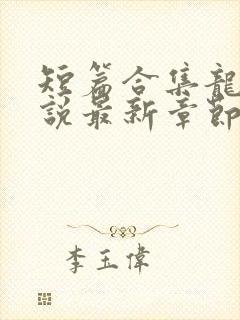 短篇合集龍
說最新章節
李玉偉